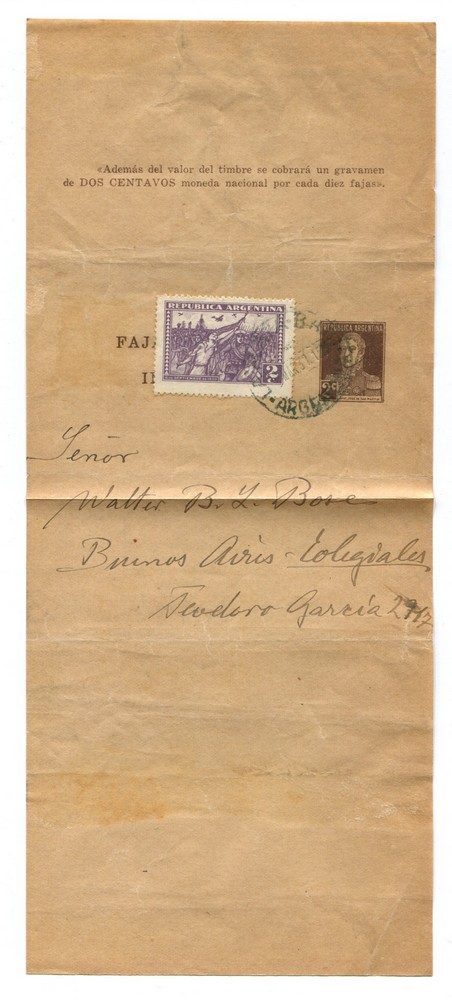 «Además del valor del timbre se cobrará un gravamen
de DOS CENTAVOS moneda nacional por cada diez fajas».
REPUBLICA ARGENTINA
2
REPUBLICA ARGENTINA
2
FAJA
ARGEN
Señor
Walter B. L. Bose
Buenos Aires - Colegiales
Teodoro García